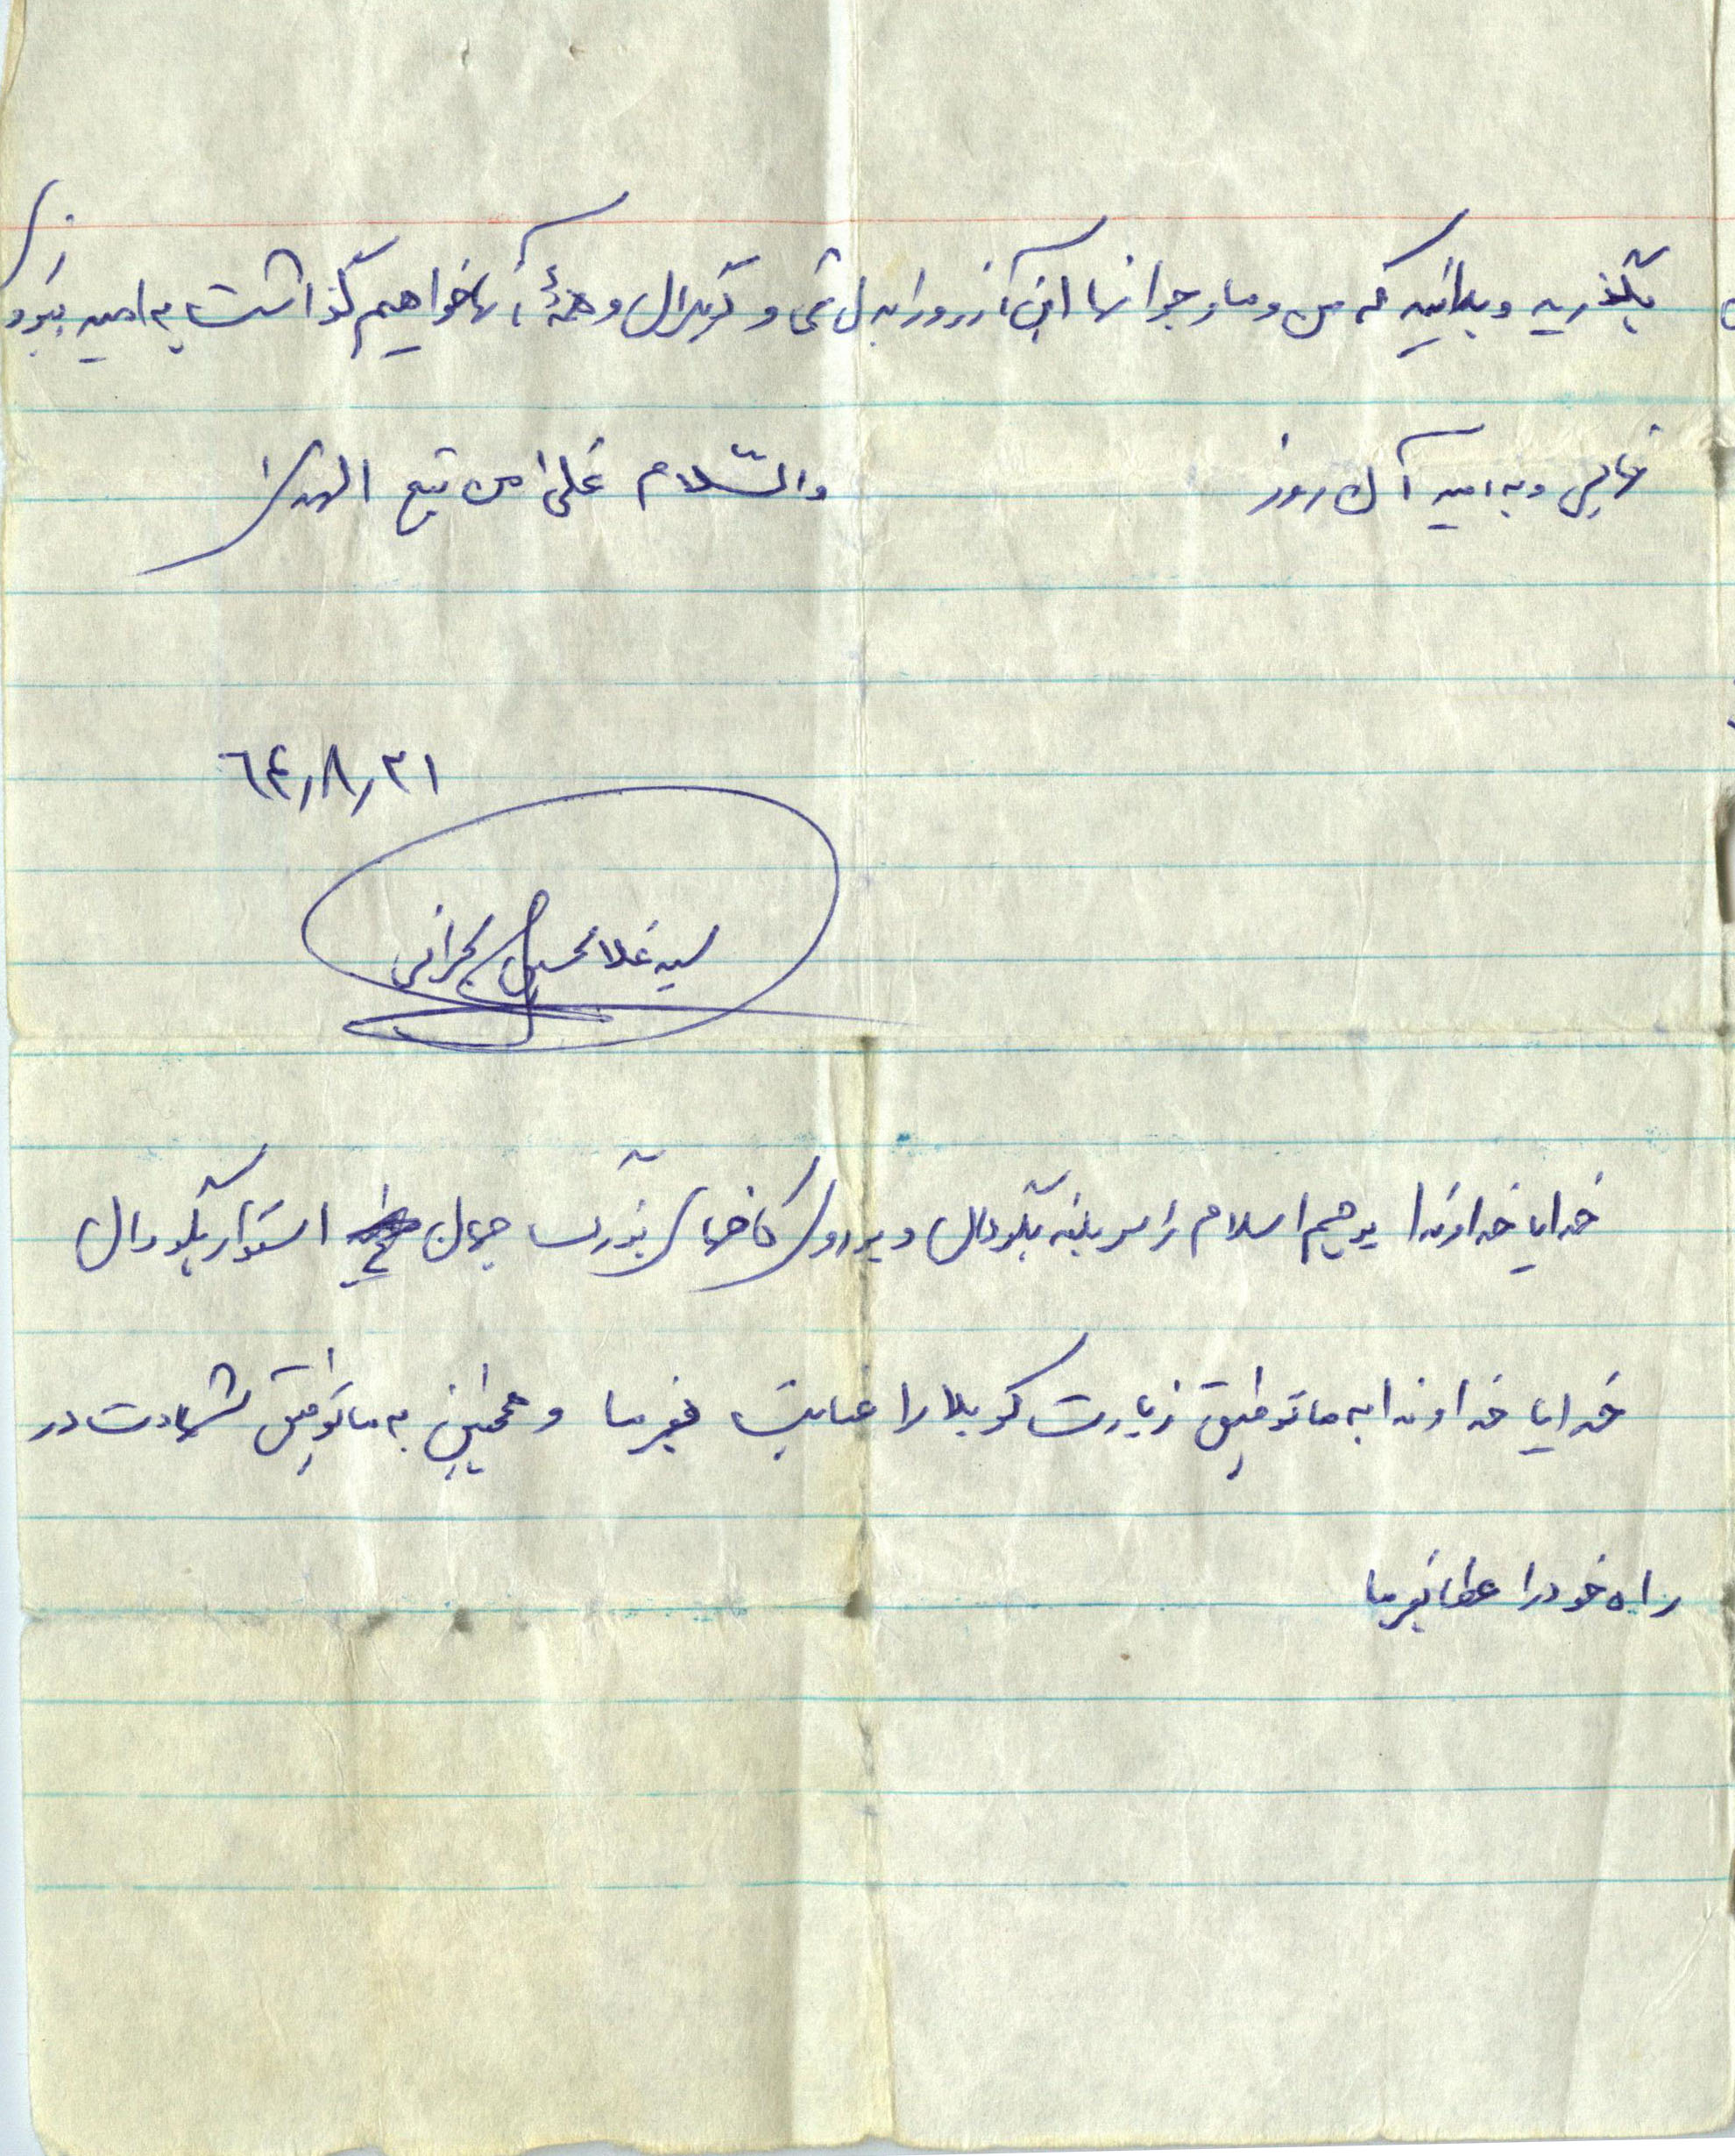 بگذرید و بدانید که من و ما و جوانها این آرزو را به دل شمر و نوکران و همهٔ آنها خواهیم گذاشت به امید پیروزی
نهایی و به امید آن روز والسّلام علیٰ من تبع الهدیٰ
۶۴٫۸٫۲۱
سید غلامحسین بحرانی
خدایا خداوندا پرچم اسلام را سربلند بگردان و بر روی کاخهای بزرگ جهان استوار بگردان
خدایا خداوندا به ما توفیق زیارت کربلا را عنایت بفرما و همچنین به ما توفیق شهادت در
راه خود را عطا بفرما